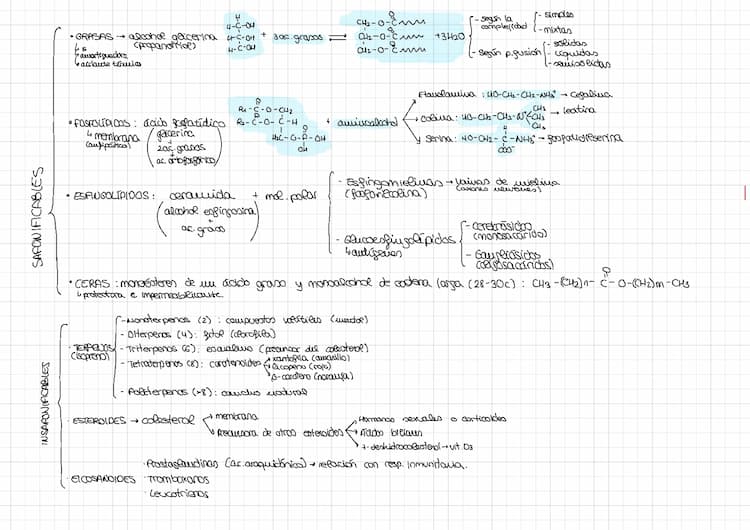 SAPONIFICABLES
• GRASAS → alcohol glicerina (propanotriol)
↳ amortiguadora
aislante térmico
H-C-OH
H-C-OH
H-C-OH
+ 3ac. grasos ⇌
CH2-O-C
CH2-O-C
CH2-O-C
+3H2O
- según la complejidad
- simples
- mixtas
- según p.fusión
- sólidas
- líquidas
- semisólidas
• FOSFOLÍPIDOS: ácido fosfatídico
↳ membrana (anfipática)
(glicerina
+
2ac. grasos
+
ac. ortofosfórico)
R1-C-O-CH2
R2-C-O-C-H
H2C-O-P-OH
OH
+ aminoalcohol
Etanolamina: HO-CH2-CH2-NH3+ → Cefalina
colina: HO-CH2-CH2-N+ CH3 CH3 CH3 → lecitina
y Serina: HO-CH2-C-NH3+ → fosfatidilserina
COO-
• ESFINGOLÍPIDOS: ceramida + mol. polar
(alcohol esfingosina
+
ac. graso)
- Esfingomielinas → vainas de mielina
(fosforicolina)
- Glucoesfingolípidos
↳ antígenos
- cerebrósido
(monosacárido)
- Gangliósidos
(oligosacáridos)
• CERAS: monoésteres de un ácido graso y monoalcohol de cadena larga (28-30c): CH3-(CH2)n-C-O-(CH2)m-CH3
↳ protectora e impermeabilizante
INSAPONIFICABLES
• TERPENOS
(isopreno)
- Monoterpenos (2): compuestos volátiles (mentol)
- Diterpenos (4): fitol (clorofila)
- Triterpenos (6): escualeno (precursor del colesterol)
- Tetraterpenos (8): carotenoides
xantofila (amarillo)
licopeno (rojo)
β-caroteno (naranja)
- Politerpenos (>8): caucho natural
• ESTEROIDES → colesterol
membrana
Precursora de otros esteroides
Hormonas sexuales o corticoides
Ácidos biliares
7-deshidrocolesterol → vit. D3
• EICOSANOIDES
Prostaglandinas (ac. araquidónico) → relación con resp. inmunitaria.
Tromboxanos
Leucotrienos